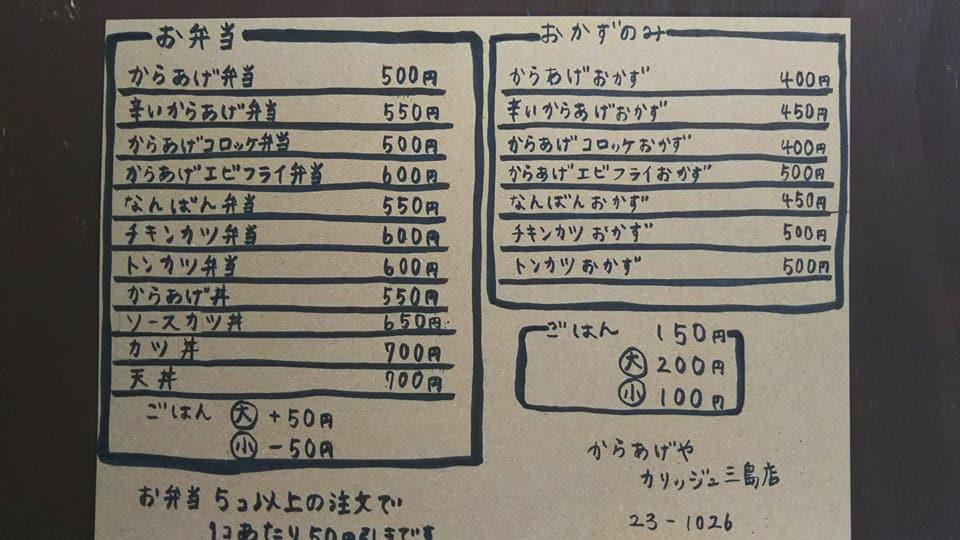 お弁当
からあげ弁当 500円
辛いからあげ弁当 550円
からあげコロッケ弁当 500円
からあげエビフライ弁当 600円
なんばん弁当 550円
チキンカツ弁当 600円
トンカツ弁当 600円
からあげ丼 550円
ソースカツ丼 650円
カツ丼 700円
天丼 700円
ごはん 大 +50円
小 -50円
お弁当 5コ以上の注文で
1コあたり50円引きです
おかずのみ
からあげおかず 400円
辛いからあげおかず 450円
からあげコロッケおかず 400円
からあげエビフライおかず 500円
なんばんおかず 450円
チキンカツおかず 500円
トンカツおかず 500円
ごはん 150円
大 200円
小 100円
からあげや
カリッジュ三島店
23-1026